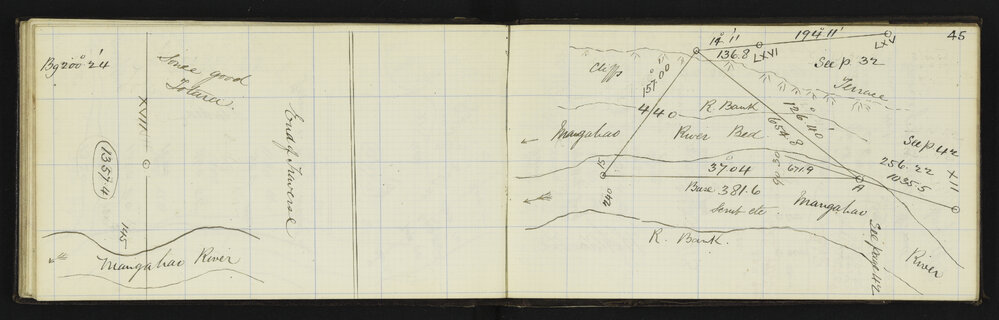 Brg 200° 24'
Some good
Totara.
XVIII
1357.4
145
End of Traverse
Mangahao River
45
194° 11'
14° 11'
136.8
LXVI
LXV
See p. 32
Cliffs
157° 00
Terrace
440
R. Bank
126° 40'
654.8
Mangahao
River Bed
See p 42
256.22
1035.5
XII
15
37.04
671.9
90.50
240
Base 381.6
A
Scrub etc.
Mangahao
R. Bank.
See page 42
River